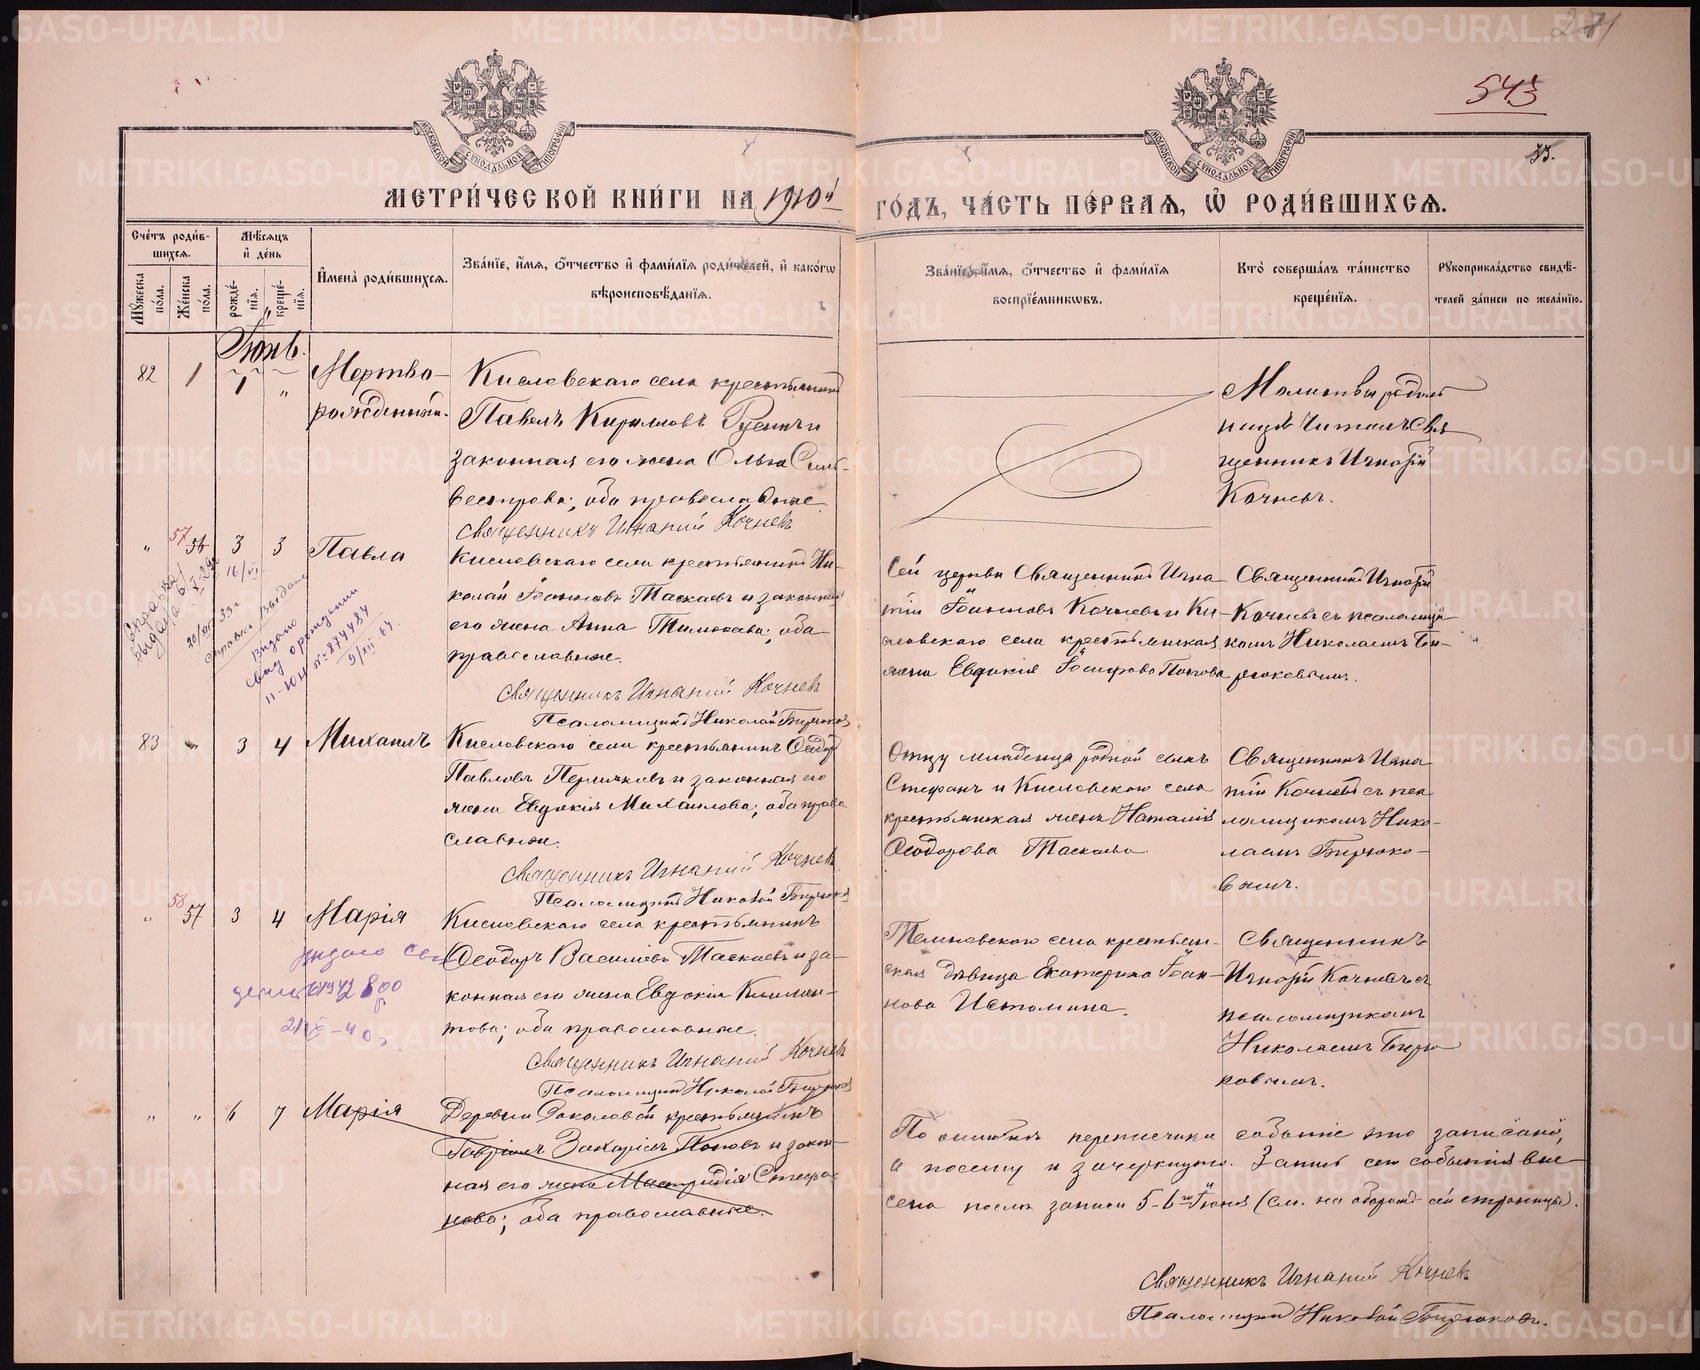 271
543
33.
МОСКОВСКОЙ СѴНОДАЛЬНОЙ ТИПОГРАФІИ
МОСКОВСКОЙ СѴНОДАЛЬНОЙ ТИПОГРАФІИ
МЕТРИ́ЧЕСКОЙ КНИ́ГИ НА 1910й ГО́ДЪ, ЧА́СТЬ ПЕ́РВАѦ, Ѡ҆ РОДИ́ВШИХСѦ.
Сче́тъ роди́в-
шихсѧ.
Мꙋ́жеска
по́ла.
Же́нска
по́ла.
Мѣ́сѧцъ
и҆ де́нь
рожде́-
нїѧ.
креще́-
нїѧ.
И҆мена̀ роди́вшихсѧ.
Зва́нїе, и҆́мѧ, ѻ҆́тчество и҆ фами́лїѧ роди́телей, и҆ како́гѡ
вѣроисповѣ́данїѧ.
Зва́нїе, и҆́мѧ, ѻ҆́тчество и҆ фами́лїѧ
воспрїе́мникѡвъ.
Кто̀ соверша́лъ та́инство
креще́нїѧ.
Рꙋкоприкла́дство свидѣ́-
телей за́писи по жела́нїю.
Іюнь.
82 1 1 „
Мертво-
рожденный.
Кисловскаго села крестьянинъ
Павелъ Кирилловъ Русинъ и
законная его жена Ольга Силь-
вестрова; оба православные
Священникъ Игнатій Кочневъ
Молитвы родиль
ницѣ читалъ Свя
щенникъ Игнатій
Кочневъ.
„ 57 56 3 3 Павла
16/VI
Кисловскаго села крестьянинъ Ни-
колай Іоанновъ Таскаевъ и законная
его жена Анна Тимофеева; оба
православные.
Священникъ Игнатій Кочневъ
Псаломщикъ Николай Бирюковъ
Сей церкви Священникъ Игна-
тій Іоанновъ Кочневъ и Ки-
словскаго села крестьянская
жена Евдокія Іосифова Попова
Священникъ Игнатій
Кочневъ съ псаломщи
комъ Николаемъ Би-
рюковымъ.
справка выдана
Выдано
свид о рождении
II-ЮН № 874484
9/XII 64.
83 „ 3 4 Михаилъ
Кисловскаго села крестьянинъ Ѳеодоръ
Павловъ Пермяковъ и законная его
жена Евдокія Михаилова; оба право
славные.
Священникъ Игнатій Кочневъ
Псаломщикъ Николай Бирюковъ
Отцу младенца родной сынъ
Стефанъ и Кисловскаго села
крестьянская жена Наталія
Ѳеодорова Таскаева
Священникъ Игна
тій Кочневъ съ пса
ломщикомъ Нико-
лаемъ Бирюко-
вымъ.
„ 58 57 3 4 Марія
Кисловскаго села крестьянинъ
Ѳеодоръ Василіевъ Таскаевъ и за-
конная его жена Евдокія Климен-
това; оба православные.
Священникъ Игнатій Кочневъ
Псаломщикъ Николай Бирюковъ
Темновскаго села крестьян-
ская дѣвица Екатерина Іоан-
нова Истомина.
Священникъ
Игнатій Кочневъ съ
псаломщикомъ
Николаемъ Бирю
ковымъ.
„ „ 6 7 Марія
Деревни Соколовой крестьянинъ
Гавріилъ Захаріевъ Поповъ и закон-
ная его жена Мастридія Стефа-
нова; оба православные.
По ошибкѣ переписчика событіе это записано,
а посему и зачеркнуто. Запись сего событія вне
сена послѣ записи 5-6го Іюня (см. на оборотѣ сей страницы).
Священникъ Игнатій Кочневъ
Псаломщикъ Николай Бирюковъ.
METRIKI.GASO-URAL.RU